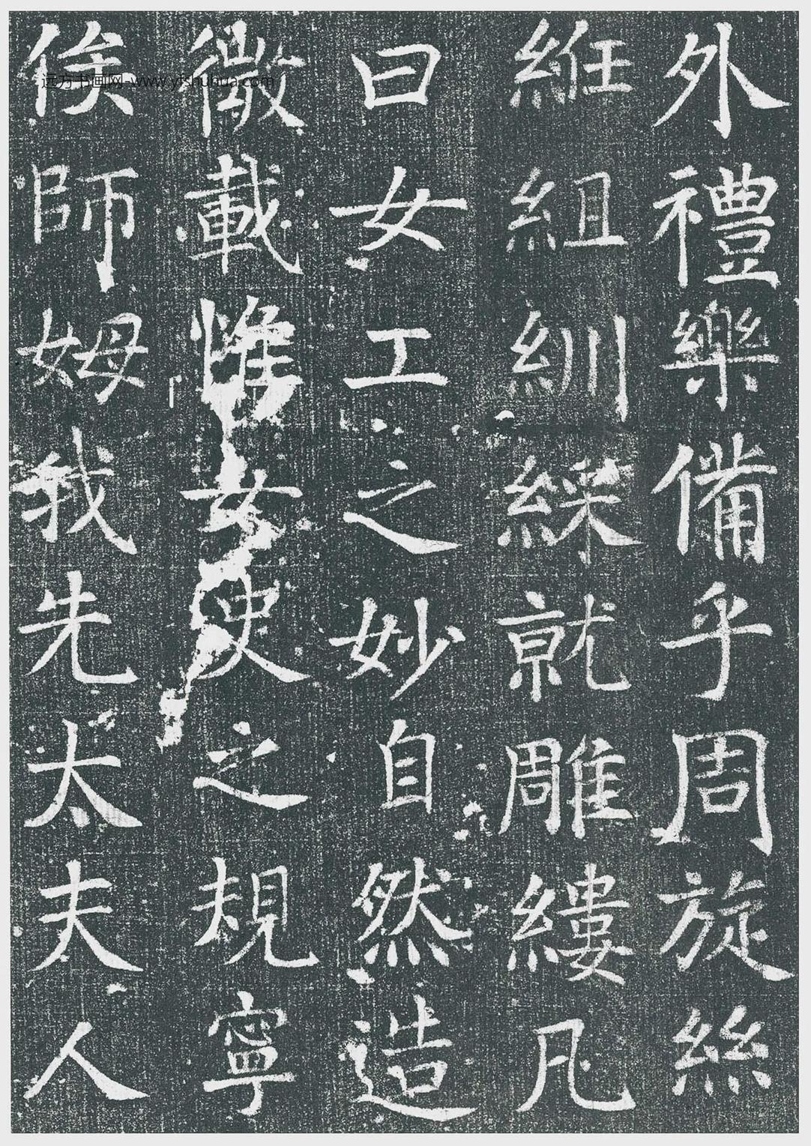 外禮樂備乎周旋絲
絍組紃綵就雕縷凡
曰女工之妙自然造
微載惟女史之規寧
俟師姆我先太夫人
远方书画网-www.yishuhua.com